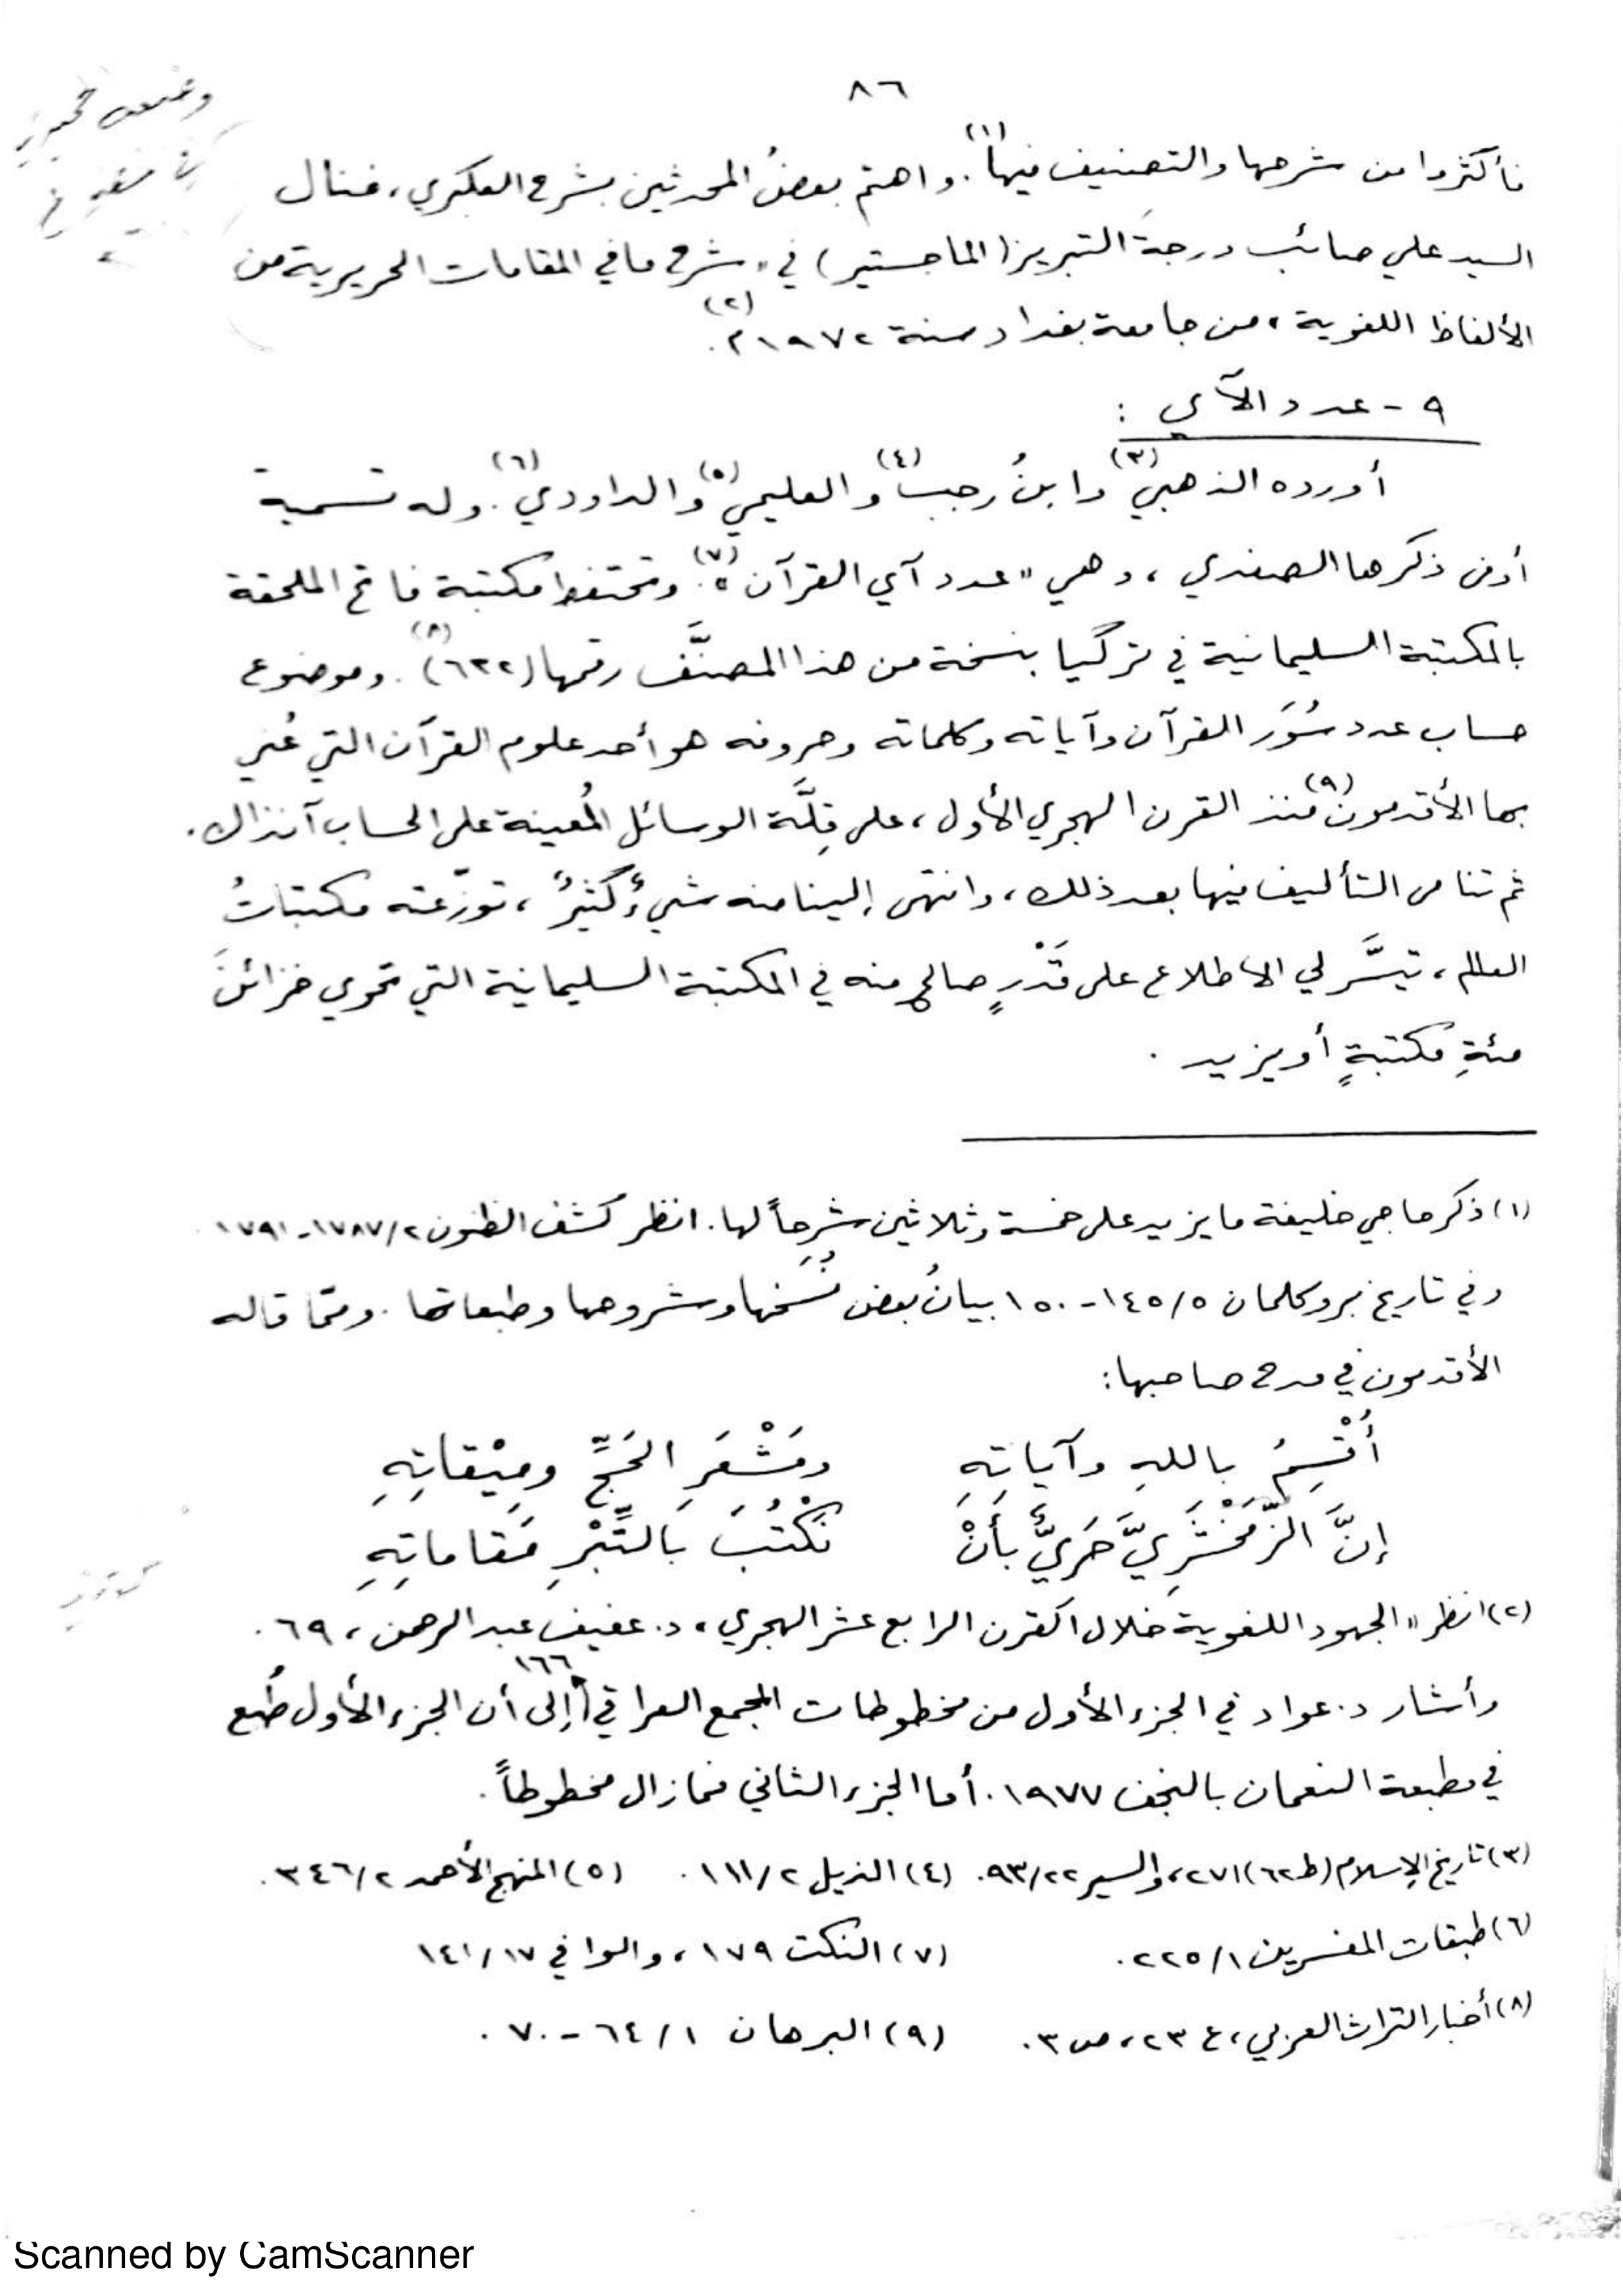 ٨٦
فأكثروا من شرحها والتصنيف فيها(١). واهتم بعضُ المحدثين بشرح العكبري، فنال
السيد علي صائب درجة التبريز (الماجستير) في «شرح ما في المقامات الحريرية من
الألفاظ اللغوية» من جامعة بغداد سنة ١٩٧٢م(٢).
٩ - عدد الآي :
أورده الذهبي(٣) وابنُ رجب(٤) والعليمي(٥) والداودي(٦). وله تسمية
أوفى ذكرها الصفدي، وهي «عدد آي القرآن»(٧). وتحتفظ مكتبة فاتح الملحقة
بالمكتبة السليمانية في تركيا بنسخة من هذا المصنَّف رقمها (٦٣٢)(٨). وموضوع
حساب عدد سُوَر القرآن وآياته وكلماته وحروفه هو أحد علوم القرآن التي عُني
بها الأقدمون(٩) منذ القرن الهجري الأول، على قِلَّة الوسائل المُعينة على الحساب آنذاك.
ثم تنامى التأليف فيها بعد ذلك، وانتهى إلينا منه شيءٌ كثيرٌ، توزّعته مكتباتُ
العالم، تيسَّر لي الاطلاع على قَدْرٍ صالحٍ منه في المكتبة السليمانية التي تحوي خزائنَ
مئةِ مكتبةٍ أو يزيد .
(١) ذكر حاجي خليفة ما يزيد على خمسة وثلاثين شرحاً لها. انظر كشف الظنون ٢/١٧٨٧-١٧٩١
وفي تاريخ بروكلمان ٥/١٤٥-١٥٠ بيانُ بعض نُسَخها وشروحها وطبعاتها. وممّا قاله
الأقدمون في مدح صاحبها:
أُقْسِمُ باللهِ وآيَاتِهِ ومَشْعَرِ الحَجِّ ومِيْقاتِهِ
إنَّ الزَّمَخْشَرِيَّ حَرِيٌّ بأَنْ نَكْتُبَ بَالتِّبْرِ مَقاماتِهِ
(٢) انظر «الجهود اللغوية خلال القرن الرابع عشر الهجري» د. عفيف عبد الرحمن، ٦٩.
وأشار د. عواد في الجزء الأول من مخطوطات المجمع العراقي ١٦٦ إلى أن الجزء الأول طُبع
في مطبعة النعمان بالنجف ١٩٧٧. أما الجزء الثاني فما زال مخطوطاً.
(٣) تاريخ الإسلام (ط٦٢) ٢٧١، والسير ٩٣/٢٢. (٤) الذيل ١١١/٢. (٥) المنهج الأحمد ٣٤٦/٢.
(٦) طبقات المفسرين ٢٢٥/١. (٧) النكت ١٧٩، والوافي ١٤١/١٧
(٨) أخبار التراث العربي، ع ٢٣، ص ٣. (٩) البرهان ٦٤/١ - ٧٠.
Scanned by CamScanner